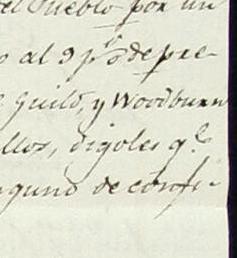 el Pueblo por un
al 9 p.º de pre-
Guild, y Woodburn
llos, digoles q.e
guno de confi-